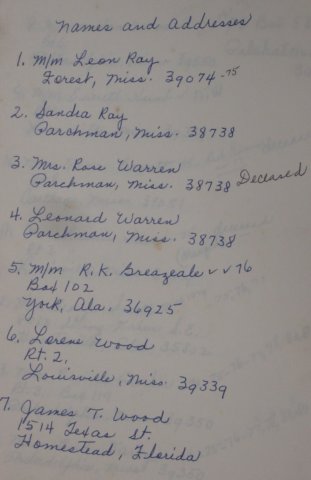 Names and Addresses
1. m/m Leon Ray
Forest, Miss. 39074-75
2. Sandra Ray
Parchman, Miss. 38738
3. Mrs. Rose Warren
Parchman, Miss. 38738 Deceased
4. Leonard Warren
Parchman, Miss. 38738
5. m/m R.K. Breazeale ✓ ✓ 76
Box 102
York, Ala. 36925
6. Lorene Wood
Rt. 2,
Louisville, Miss. 39339
7. James T. Wood
1514 Texas St.
Homestead, Florida